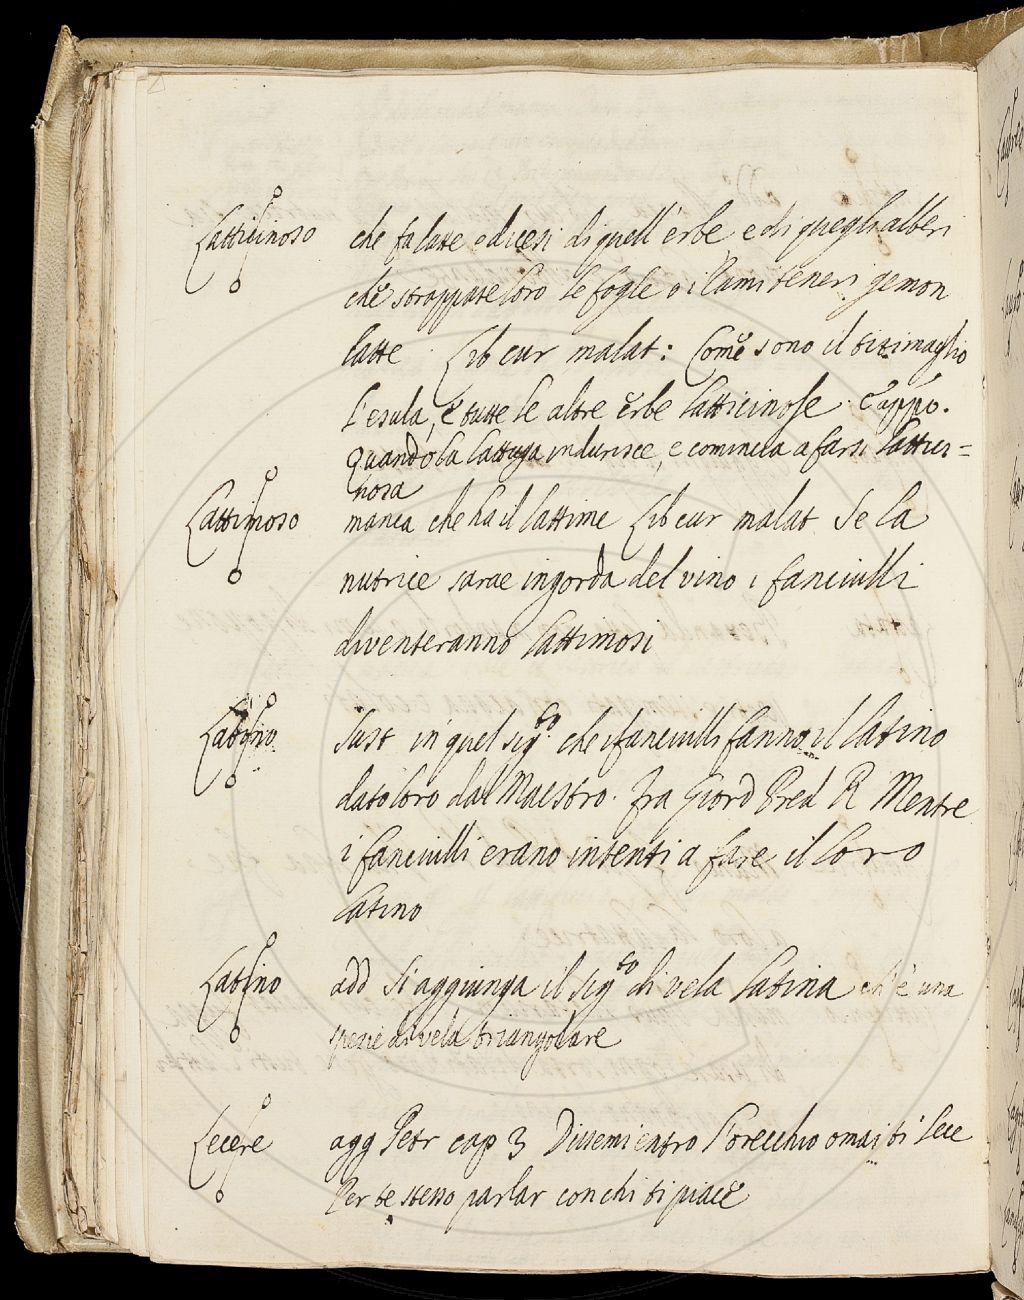 Latticinoso che fa latte e dicesi di quell'erbe e di quegli alberi
che strappate loro le fogle o i Rami teneri gemon
latte. Lib cur malat: Come sono il titimaglio
l'esula, e tutte le altre erbe latticinose. E appo.
quando la lattuga indurisce, e comincia a farsi lattici=
nosa
Lattimoso manca che ha il lattime Lib cur malat Se la
nutrice sarae ingorda del vino i fanciulli
diventeranno lattimosi
Latino Sust in quel sigto che i fanciulli fanno il latino
dato loro dal Maestro. fra Giord Pred R Mentre
i fanciulli erano intenti a fare il loro
latino
Latino add Si aggiunga il sigto di vela latina ch'è una
spezie di vela triangolare
Lecere agg Petr cap 3 Dissemi entro l'orecchio omai ti lece
Per te stesso parlar con chi ti piace